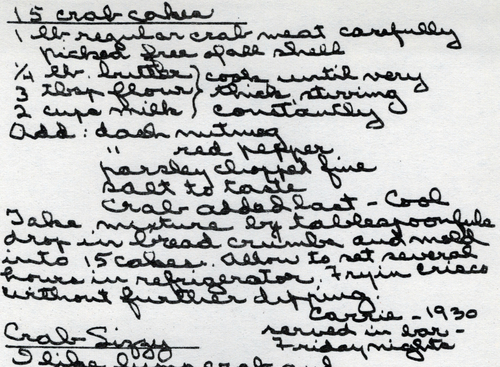 15 crab cakes
1 lb regular crab meat carefully
picked free of all shell
1/4 lb. butter } cook until very
3 tbsp flour } thick stirring
2 cups milk } constantly
Add: dash nutmeg
" red pepper
parsley chopped fine
salt to taste
Crab added last - Cool
Take mixture by tablespoonfuls
drop in bread crumbs and mold
into 15 cakes. Allow to set several
hours in refrigerator. Fry in crisco
without further dipping.
Carrie - 1930
served in bar -
Friday nights
Crab Sizzy
I like lump crab and